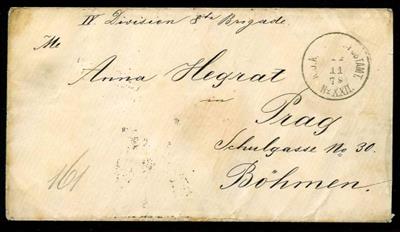 IV Division 8te Brigade.
Me
Anna Hegrat
in
Prag
Schulgasse No 30.
Böhmen.
161
11
78
No XXII.